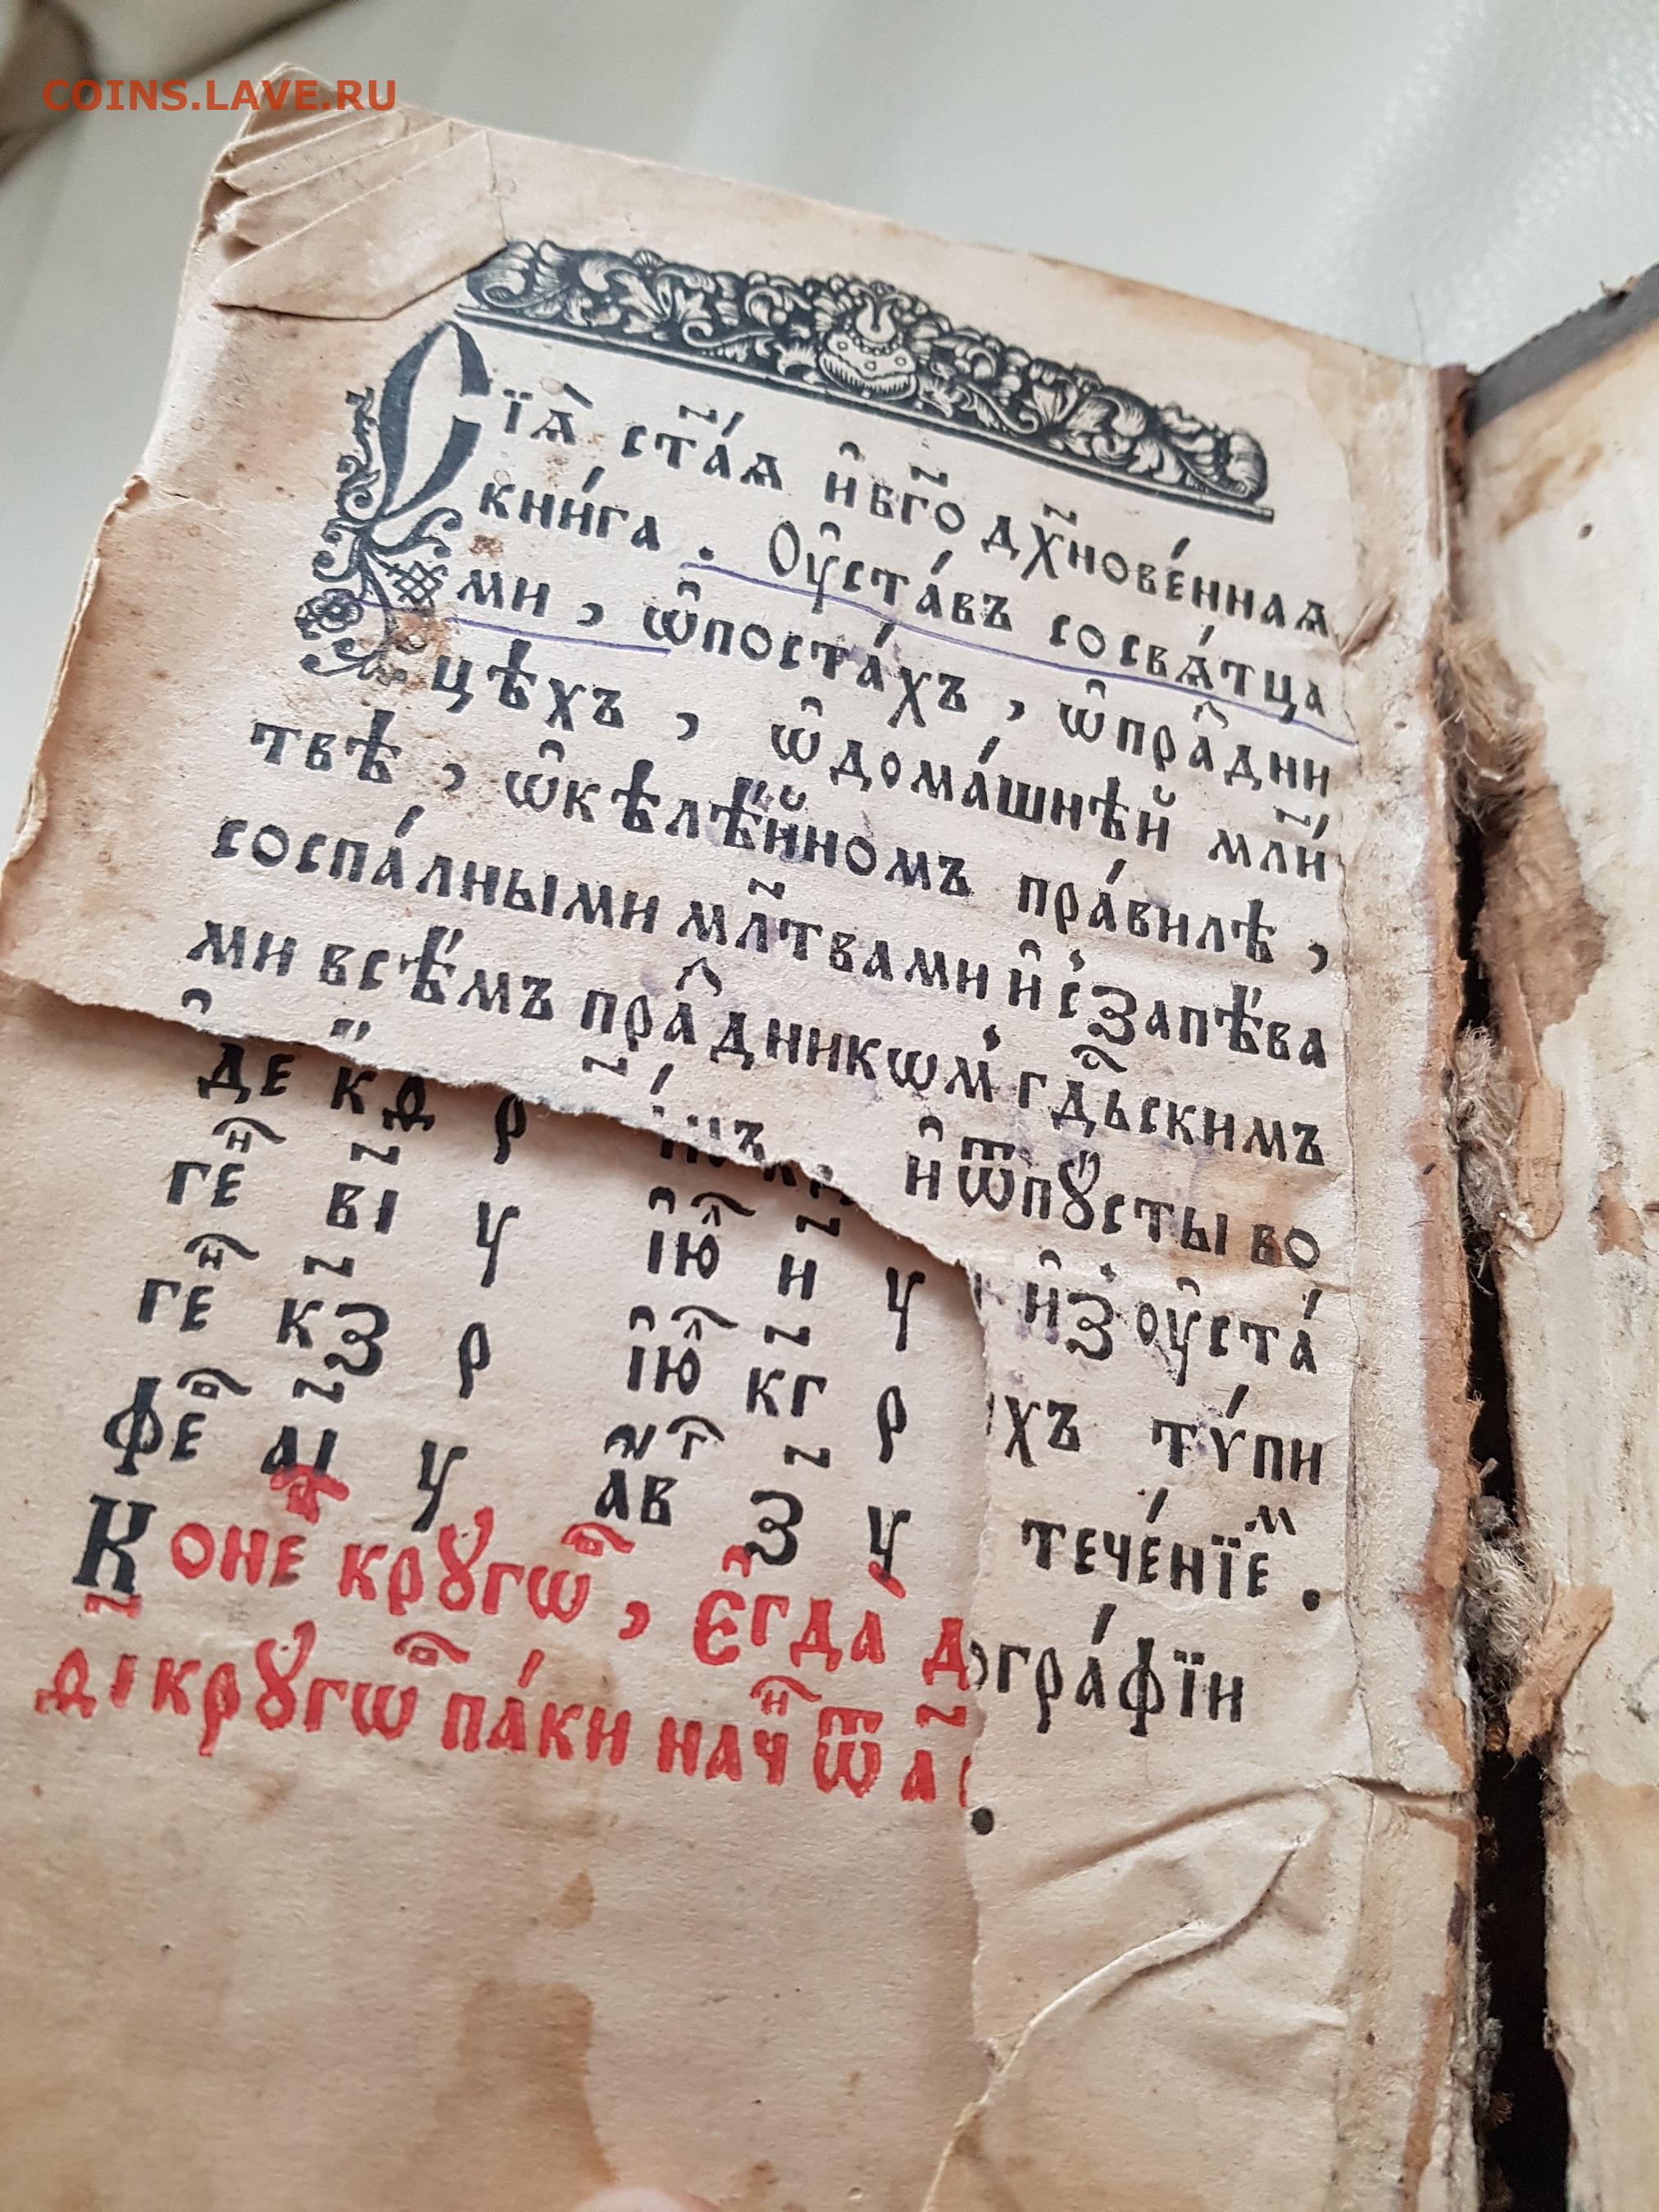 COINS.LAVE.RU
Сїѧ̑ ст҃а́ѧ и҆бг҃о дх҃нове́ннаѧ
кни́га . Оу҆ста́въ сосвѧ́тца
ми , ѡ҆поста́хъ , ѡ҆пра̑дни
цѣхъ , ѡ҆дома́шнѣй мл҃и́
твѣ , ѡ҆кѣлѣ́йномъ пра́вилѣ ,
соспа́лными мл҃твами и҆ сзапѣ́ва
ми всѣ́мъ пра̑дникѡм гд̑ьскимъ
и҆ ѿпꙋсты во
и҆з оу҆ста́
хъ тѵ́пи
тече́нїеⷨ .
огра́фїи
.
де к҃ѕ р
геⷩ҇ в҃і ч і҆юⷧ҇ и҃ ч
геⷩ҇ к҃з р і҆юⷧ҇ к҃г р
феⷡ҇ а҃і ч а҆́вⷢ҇ з҃ ч
Коне крꙋгѡⷡ҇ , є҆гда̀ д
ѕ҃і крꙋгѡⷡ҇ па́ки начⷩ҇ ѿ а҃